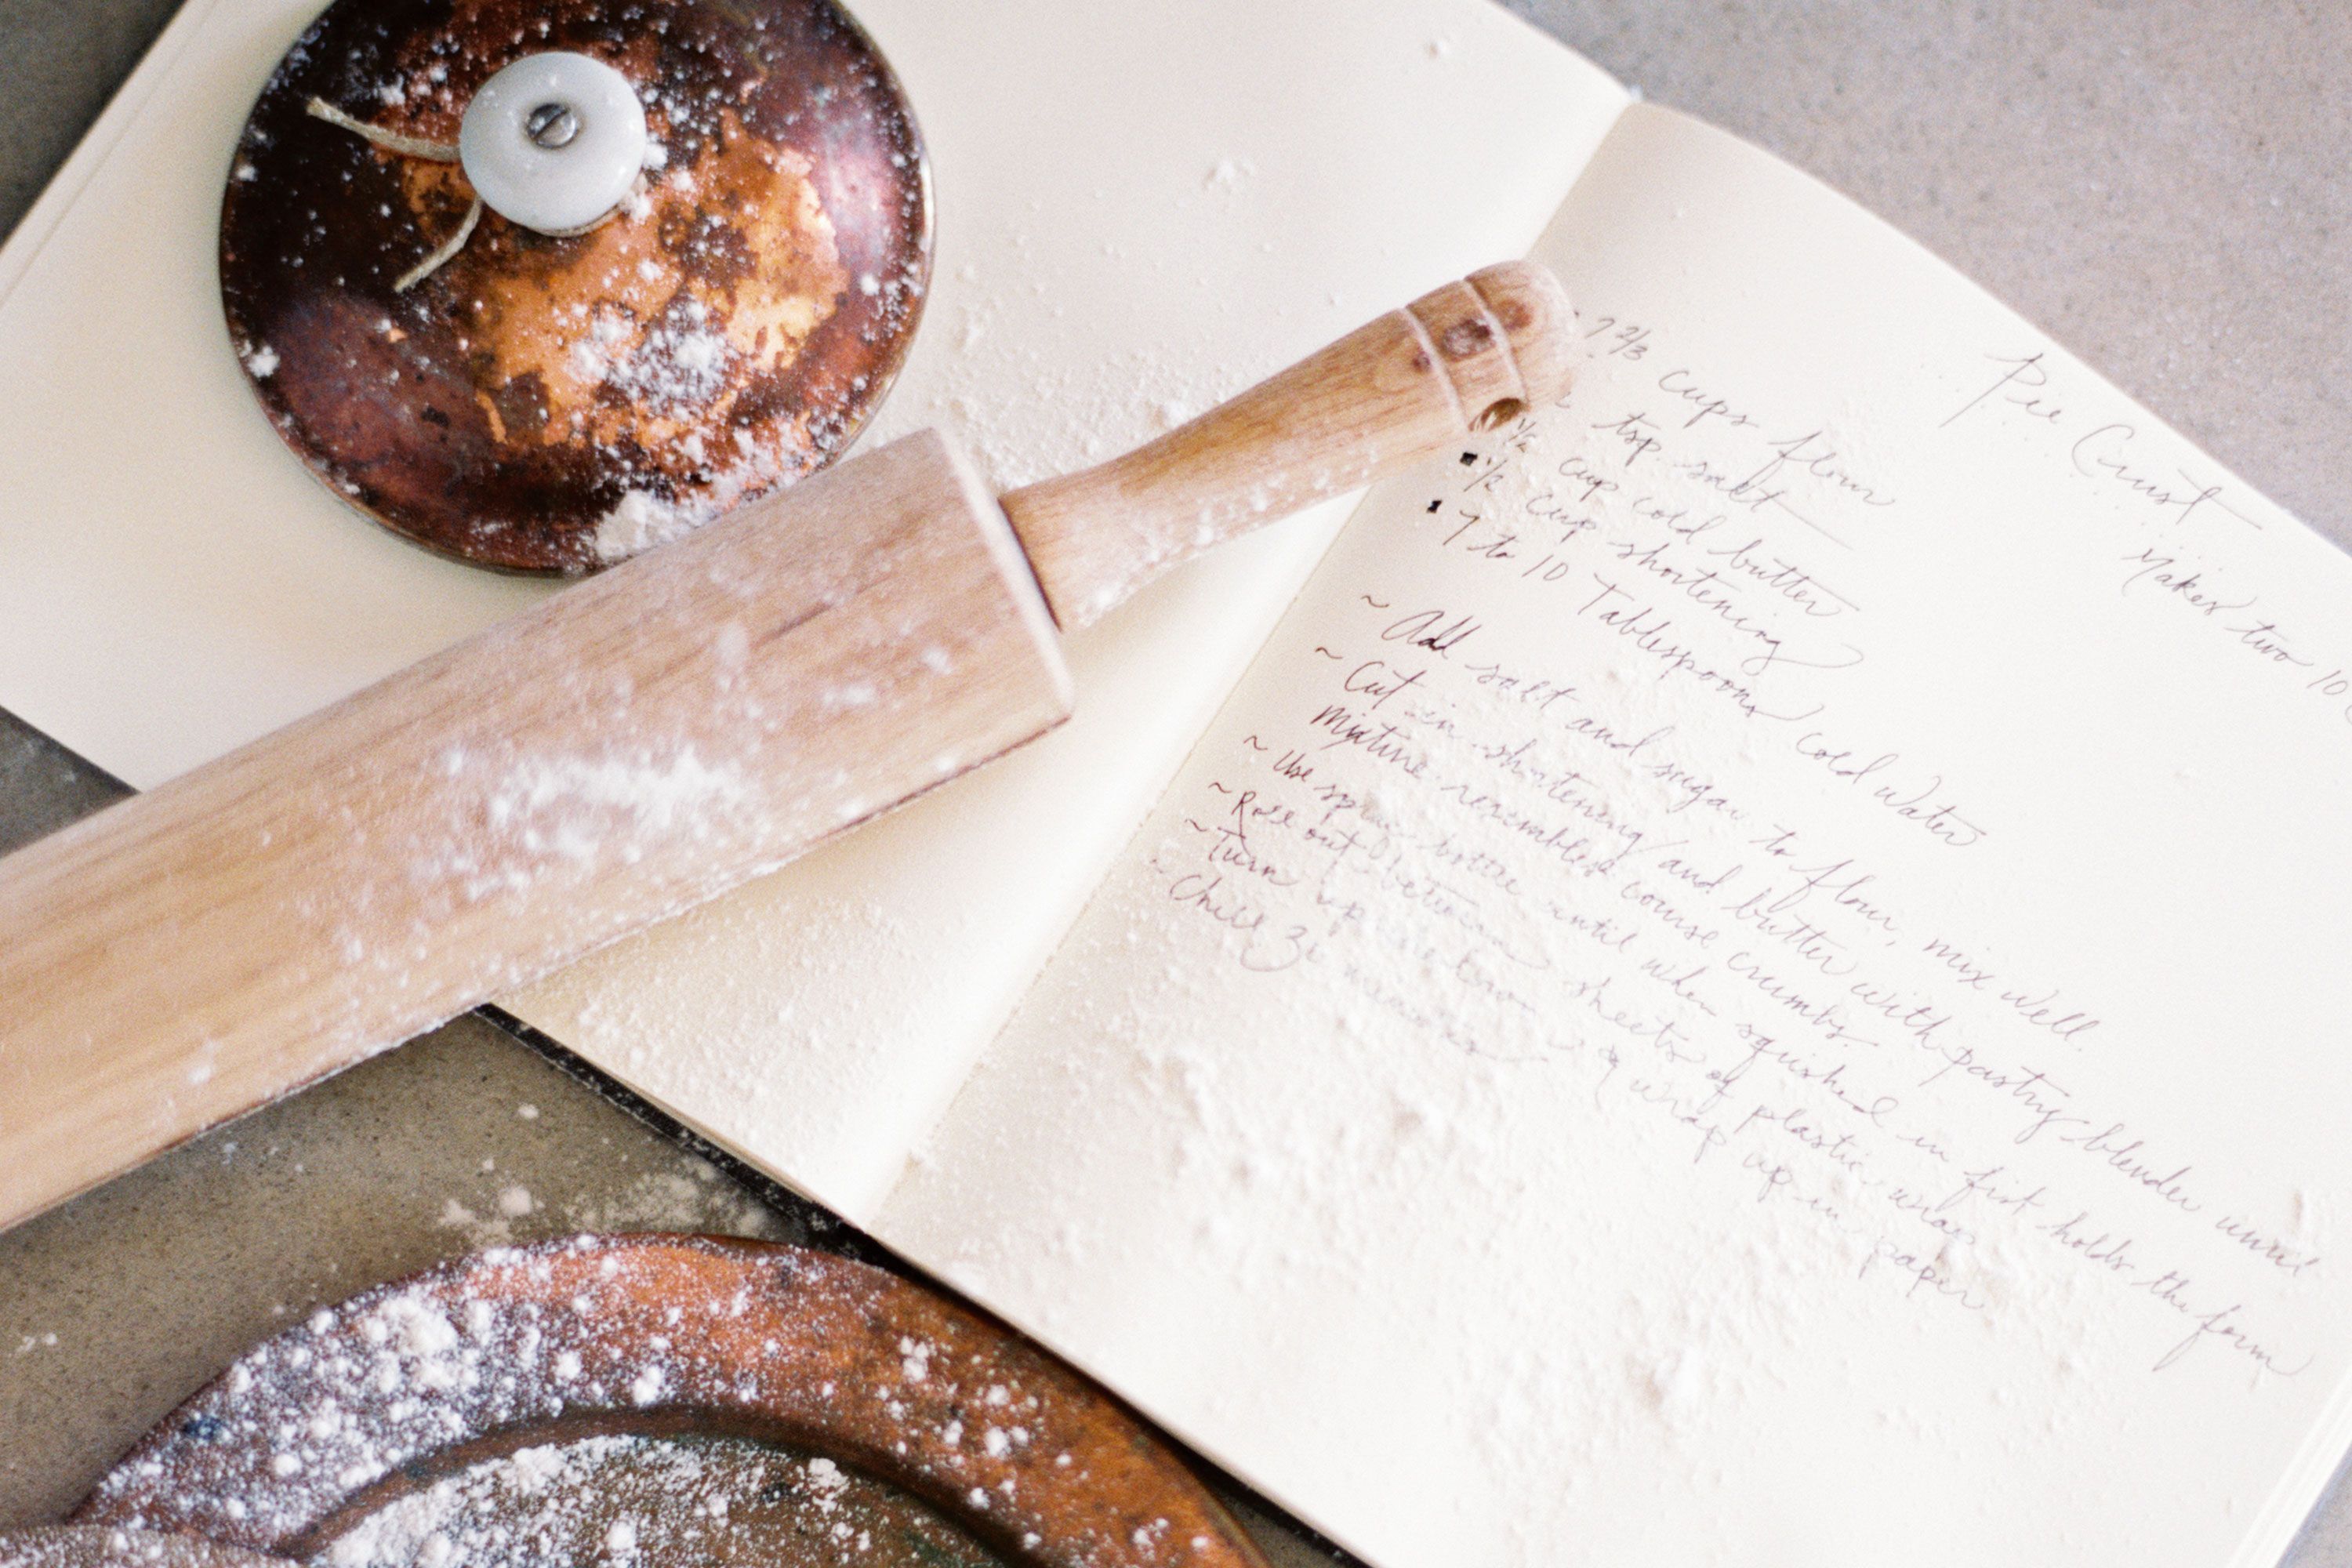 Pie Crust
Makes two 10
2/3 cups flour
tsp salt
1/2 cup cold butter
1/2 cup shortening
7 to 10 Tablespoons cold water
~ Add salt and sugar to flour, mix well.
~ Cut in shortening and butter with pastry blender until
mixture resembles course crumbs.
~ Use spray bottle until when squished in fist holds the form
~ Roll out between sheets of plastic wrap
~ Turn up & wrap up in paper
~ Chill 30 minutes